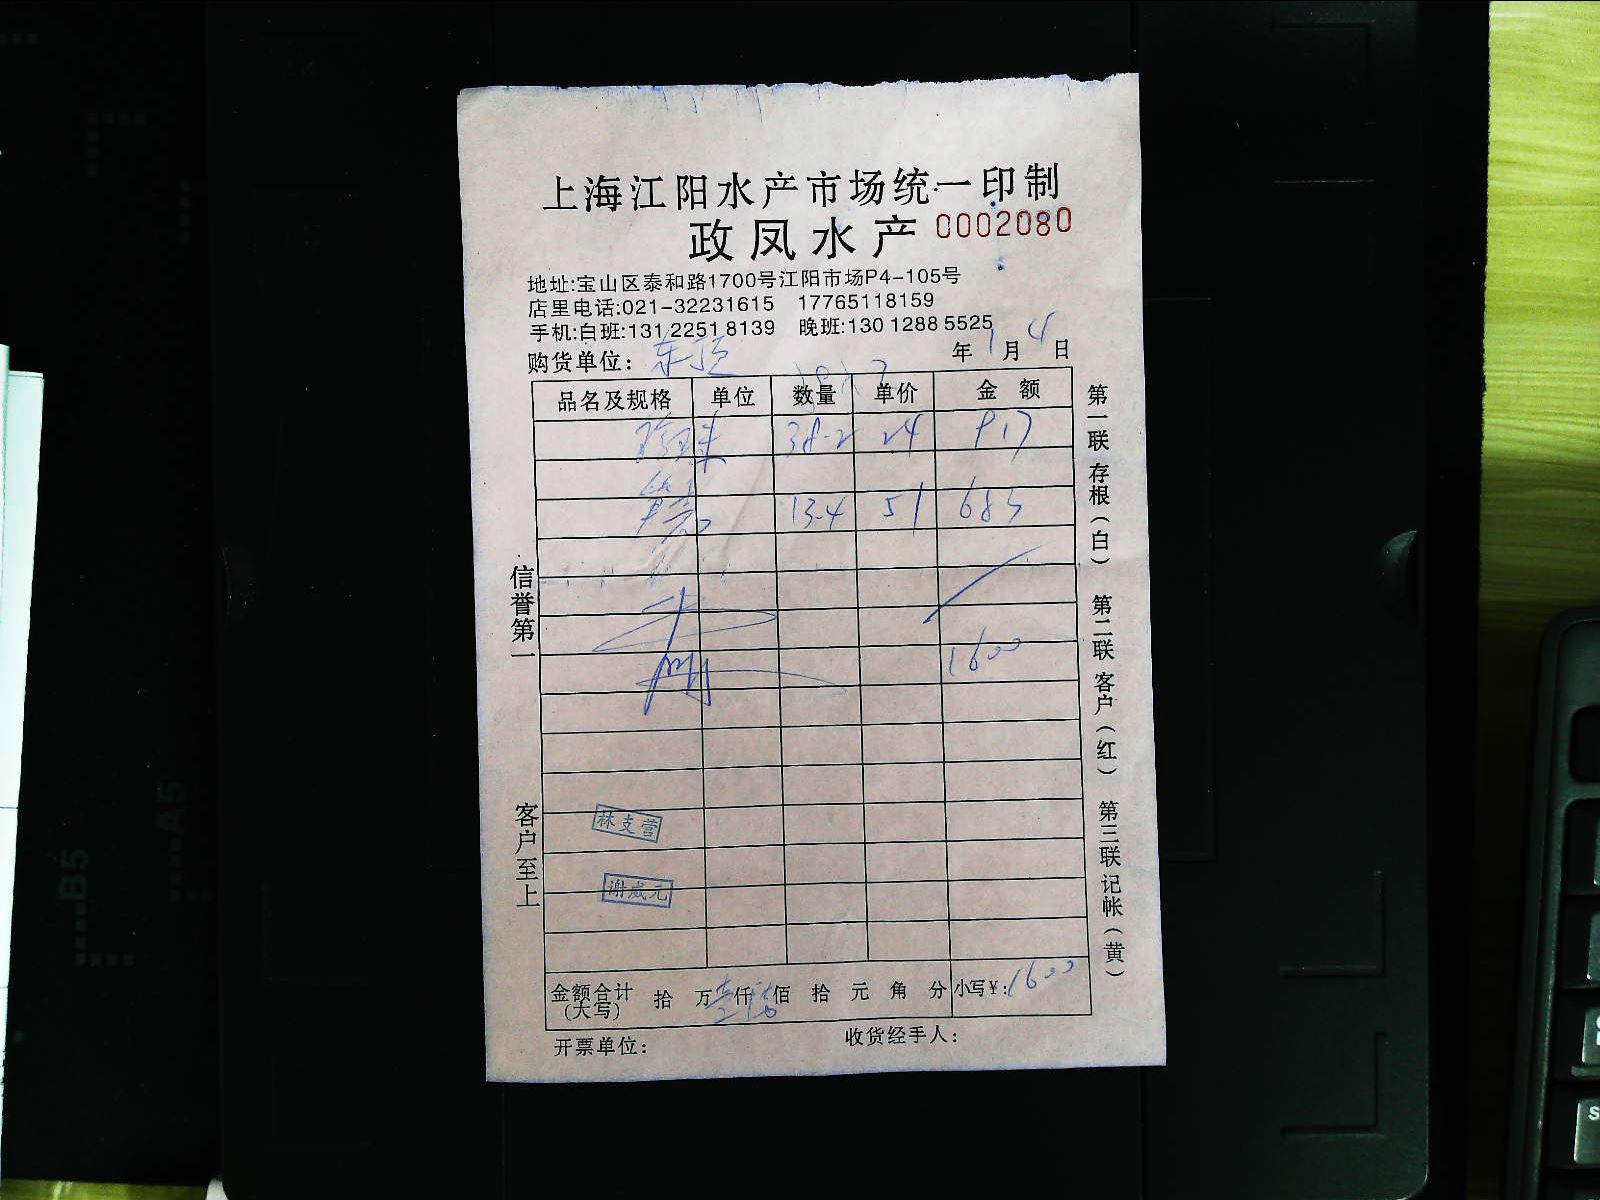 上海江阳水产市场统一印制
政凤水产 0002080
地址:宝山区泰和路1700号江阳市场P4-105号
店里电话:021-32231615 17765118159
手机:白班:131 2251 8139 晚班:130 1288 5525
购货单位: 年 1 月 4 日
品名及规格 单位 数量 单价 金额
珍珠 38-2 24 917
13-4 51 683
1600
林支营
谢威元
金额合计(大写) 拾 万 壹 仟 陆 佰 拾 元 角 分 小写¥:1600
开票单位: 收货经手人:
信誉第一
客户至上
第一联存根(白)
第二联客户(红)
第三联记帐(黄)
B5
A5